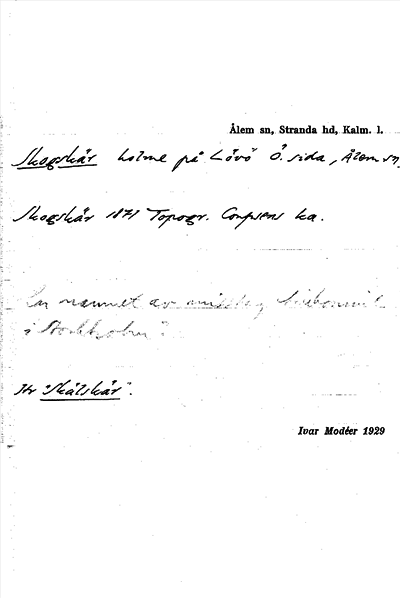 Ålem sn, Stranda hd, Kalm. l.
Skogskär holme på Lövö Ö. sida, Ålem sn.
Skogskär 1871 Topogr. Corpsens ka.
namnet av misstag
i Stockholm?
"Skälskär".
Ivar Modéer 1929